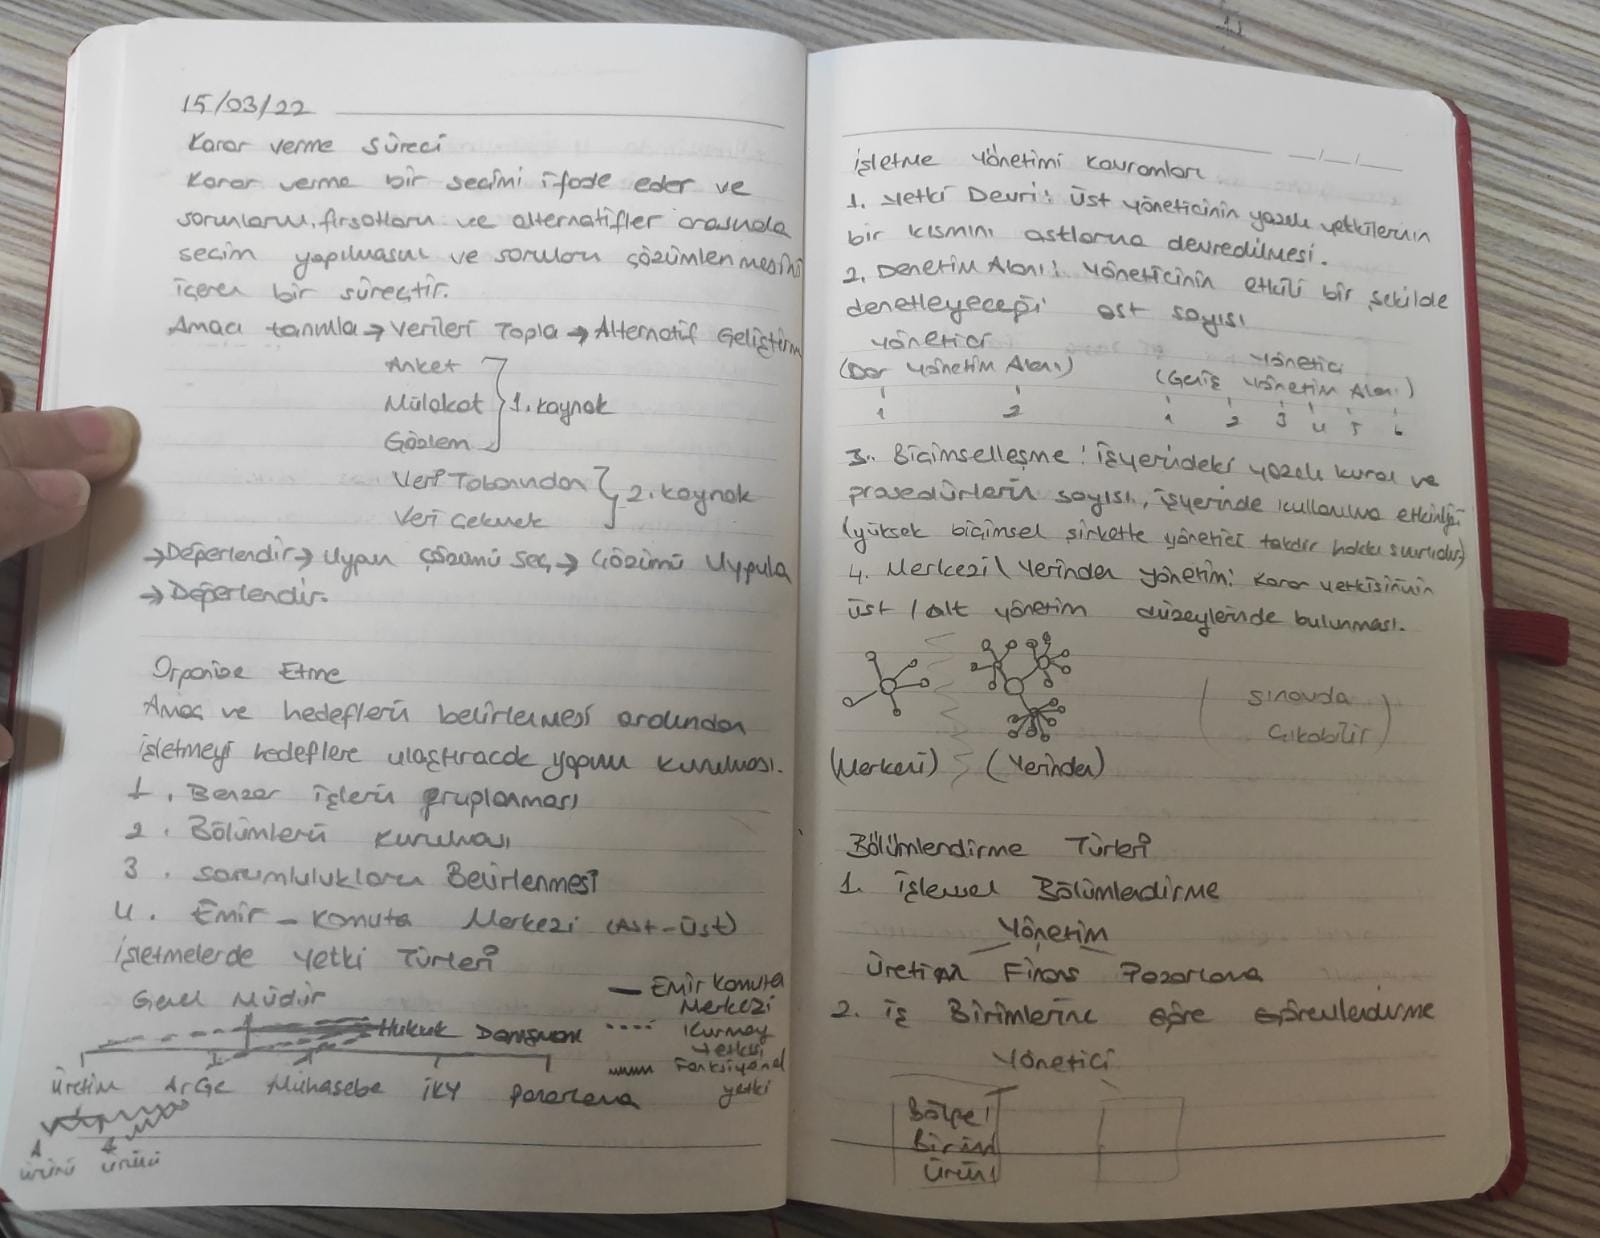 15/03/22
Karar verme süreci
Karar verme bir seçimi ifade eder ve
sorunların, fırsatların ve alternatifler arasında
seçim yapılmasını ve sorunları çözümlenmesini
içeren bir süreçtir.
Amacı tanımla → Verileri Topla → Alternatif Geliştirme
Anket
Mülakat
1. kaynak
Gözlem
Veri Tabanından
2. kaynak
Veri Çekmek
→ Değerlendir → Uygun Çözümü Seç → Çözümü Uygula
→ Değerlendir.
Organize Etme
Amaç ve hedeflerin belirlenmesi ardından
işletmeyi hedeflere ulaştıracak yapının kurulması.
1. Benzer işlerin gruplanması
2. Bölümlerin kurulması
3. Sorumlulukların Belirlenmesi
4. Emir-Komuta Merkezi (Ast-Üst)
İşletmelerde Yetki Türleri
Genel Müdür
Emir Komuta
Merkezi
Hukuk Danışman
Kurmay
Yetkisi
Fonksiyonel
yetki
Üretim ArGe Muhasebe İKY Pazarlama
A
ürünü ürünü
İşletme Yönetimi Kavramları
1. Yetki Devri: Üst yöneticinin yazılı yetkilerinin
bir kısmını astlarına devredilmesi.
2. Denetim Alanı: Yöneticinin etkili bir şekilde
denetleyeceği ast sayısı
Yönetici
Yönetici
(Dar Yönetim Alanı) (Geniş Yönetim Alanı)
1 2 1 2 3 4 5 6
3. Biçimselleşme: İşyerindeki yazılı kural ve
prosedürlerin sayısı, işyerinde kullanılma etkinliği
(yüksek biçimsel şirkette yönetici takdir hakkı sınırlıdır)
4. Merkezi \ Yerinden Yönetim: Karar yetkisinin
üst / alt yönetim düzeylerinde bulunması.
(Sınavda
Çıkabilir)
(Merkezi) (Yerinden)
Bölümlendirme Türleri
1. İşlevsel Bölümlendirme
Yönetim
Üretim Finans Pazarlama
2. İş Birimlerine Göre Görevlendirme
Yönetici
Bölge 1
Birim
Ürün 1